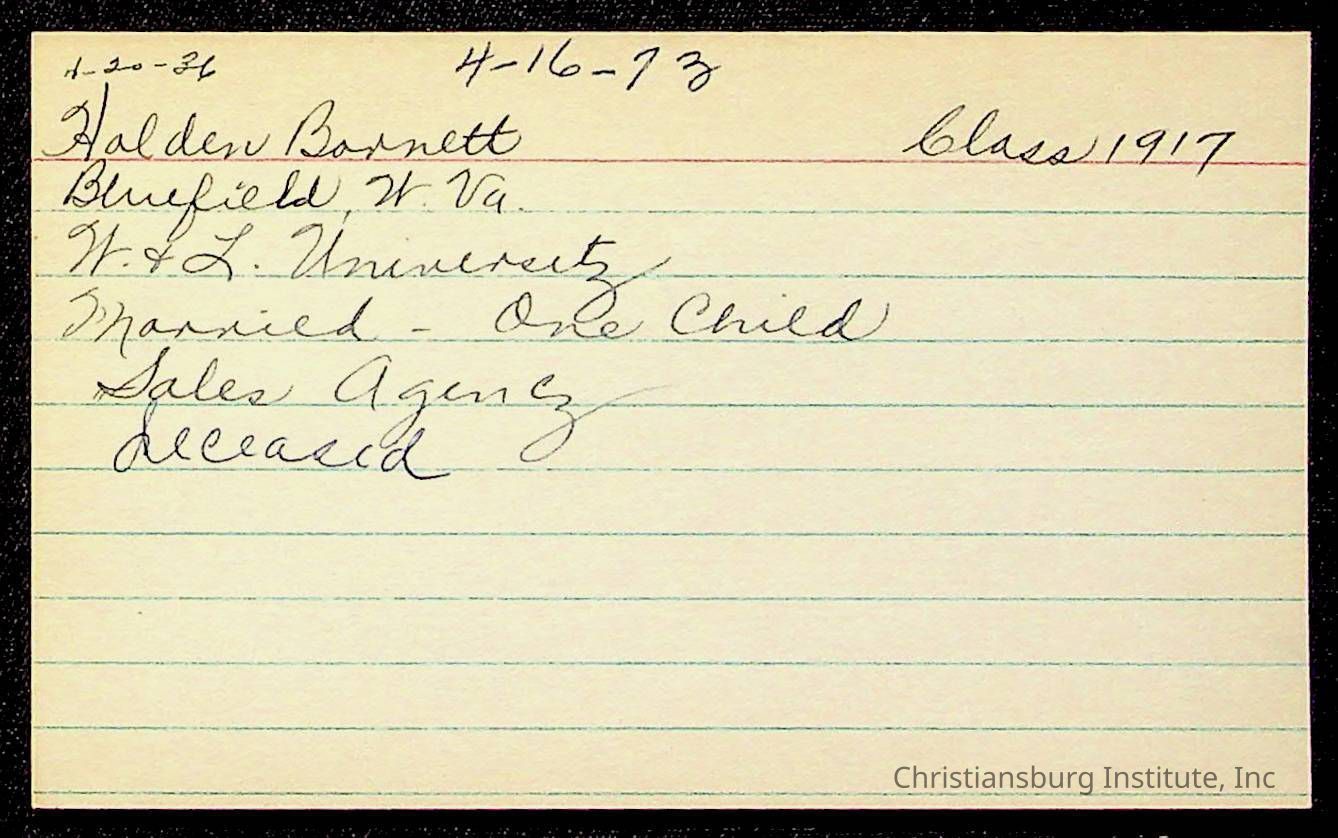 4-20-36 4-16-73
Holden Barnett Class 1917
Bluefield, W. Va.
W. & L. University
Married - One Child
Sales Agency
deceased
Christiansburg Institute, Inc